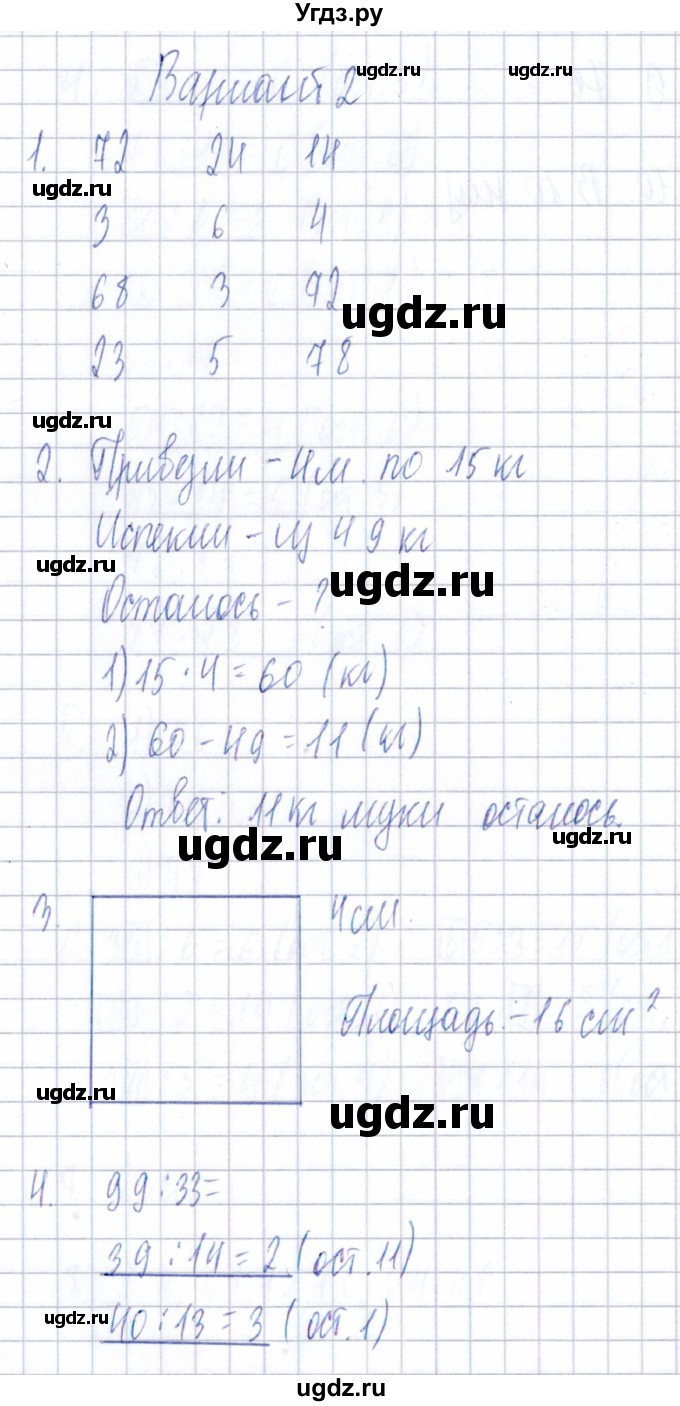 Угдз.ру
Вариант 2
ugdz.ru ugdz.ru
1. 72 24 14
ugdz.ru
3 6 4
68 3 92
ugdz.ru
23 5 78
ugdz.ru
2. Привезли - 4 м. по 15 кг
Испекли - из 49 кг
ugdz.ru ugdz.ru
Осталось - ?
1) 15 · 4 = 60 (кг)
2) 60 - 49 = 11 (кг)
Ответ: 11 кг муки осталось.
ugdz.ru ugdz.ru
3. 4 см.
Площадь - 16 см²
ugdz.ru ugdz.ru
4. 99 : 33 =
39 : 14 = 2 (ост. 11)
40 : 13 = 3 (ост. 1)
ugdz.ru
ugdz.ru